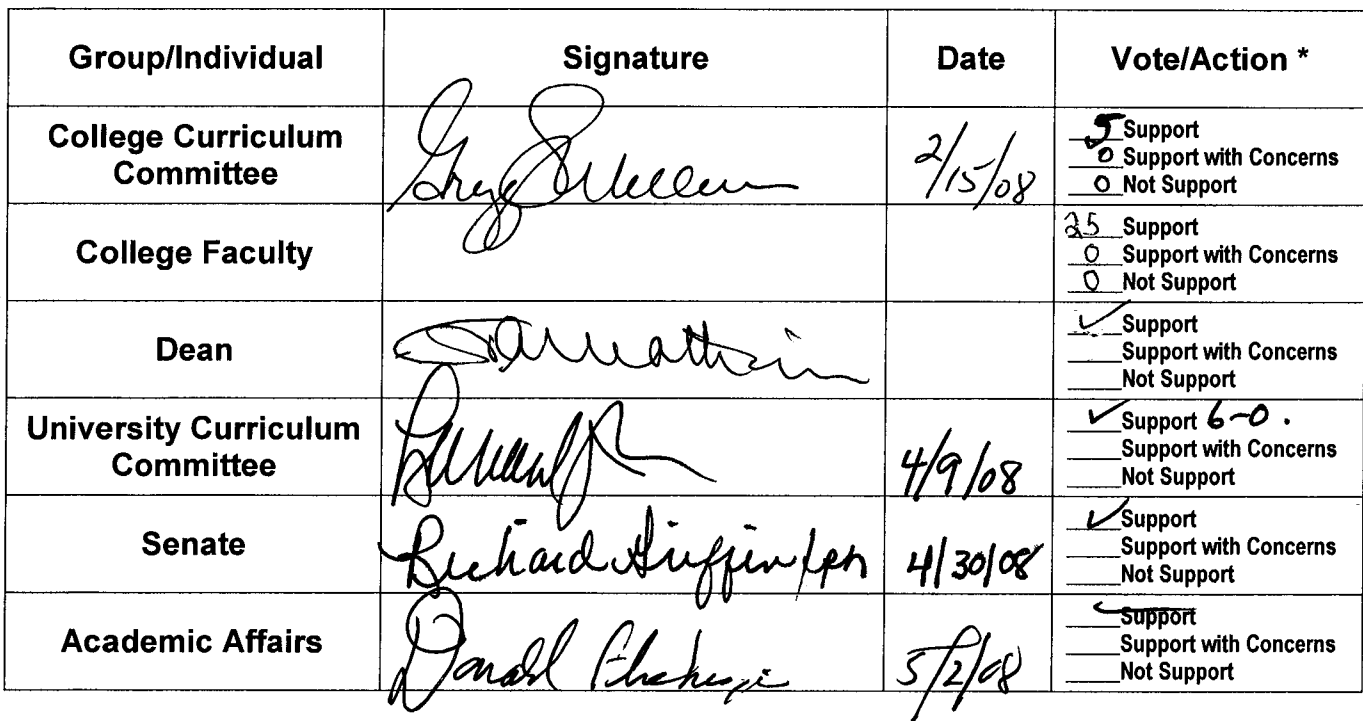 Group/Individual Signature Date Vote/Action *
College Curriculum Committee 2/15/08
5 Support
0 Support with Concerns
0 Not Support
College Faculty
25 Support
0 Support with Concerns
0 Not Support
Dean
✓ Support
Support with Concerns
Not Support
University Curriculum Committee 4/9/08
✓ Support 6-0.
Support with Concerns
Not Support
Senate Richard Griffin/ 4/30/08
✓ Support
Support with Concerns
Not Support
Academic Affairs Donald 5/2/08
Support
Support with Concerns
Not Support